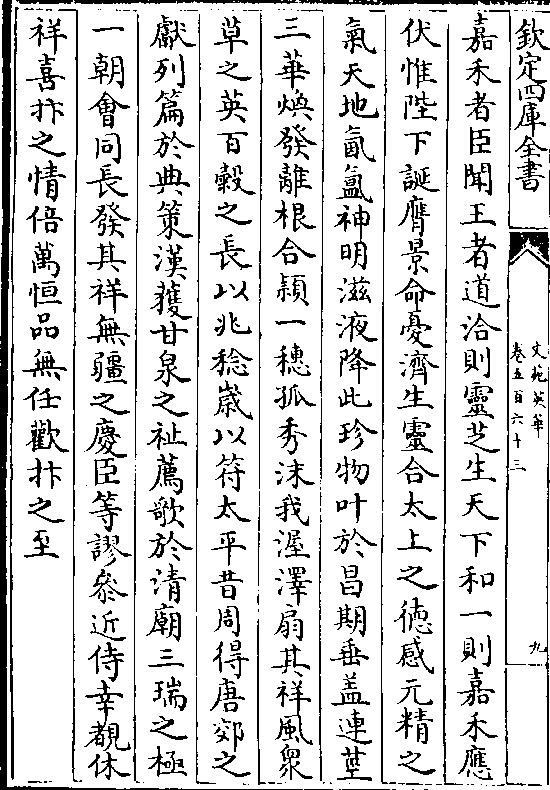 欽定四庫全書
文苑英華
卷五百六十三
九
嘉禾者臣聞王者道洽則靈芝生天下和一則嘉禾應
伏惟陛下誕膺景命憂濟生靈合太上之德感元精之
氣天地氤氳神明滋液降此珍物叶於昌期垂盖連莖
三華煥發離根合穎一穗孤秀沬我渥澤扇其祥風衆
草之英百榖之長以兆稔嵗以符太平昔周得唐郊之
獻列篇於典策漢獲甘泉之祉薦歌於清廟三瑞之極
一朝會同長發其祥無疆之慶臣等謬叅近侍幸覩休
祥喜抃之情倍萬恒品無任歡抃之至